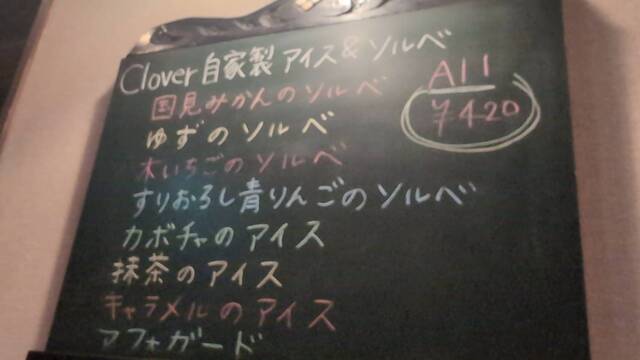 Clover 自家製 アイス&ソルベ
All
¥420
国見みかんのソルベ
ゆずのソルベ
木いちごのソルベ
すりおろし青りんごのソルベ
カボチャのアイス
抹茶のアイス
キャラメルのアイス
アフォガード